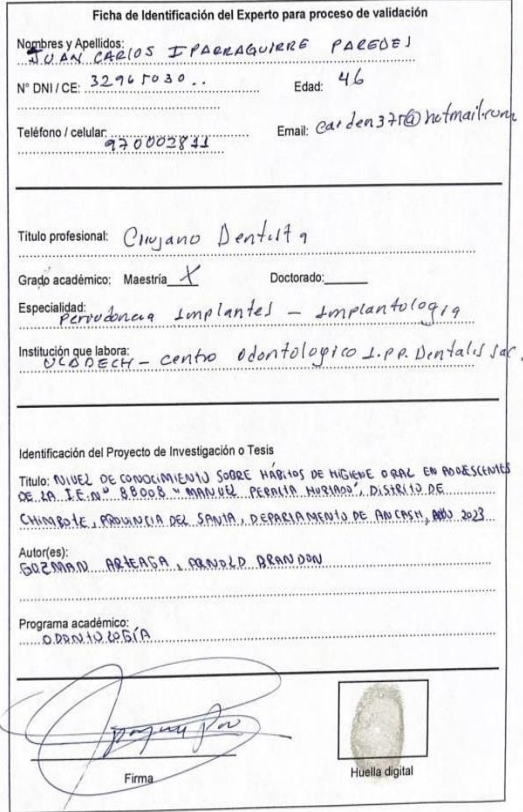 Ficha de Identificación del Experto para proceso de validación
Nombres y Apellidos:
JUAN CARLOS IPARRAGUIRRE PAREDES
N° DNI / CE: 32965030.. Edad: 46
Teléfono / celular: 970002811 Email: carden375@hotmail.com
Título profesional: Cirujano Dentista
Grado académico: Maestría X Doctorado:
Especialidad:
Periodoncia Implantes - Implantologia
Institución que labora:
ULADECH - centro odontologico I.P.P. Dentalis Sac.
Identificación del Proyecto de Investigación o Tesis
Titulo: NIVEL DE CONOCIMIENTO SOBRE HÁBITOS DE HIGIENE ORAL EN ADOLESCENTES
DE LA I.E. N° 88008 "MANUEL PERALTA HURTADO", DISTRITO DE
CHIMBOTE, PROVINCIA DEL SANTA, DEPARTAMENTO DE ANCASH, AÑO 2023
Autor(es):
GOZMAN ARTEAGA, ARNOLD BRANDON
Programa académico:
ODONTOLOGÍA
Firma
Huella digital